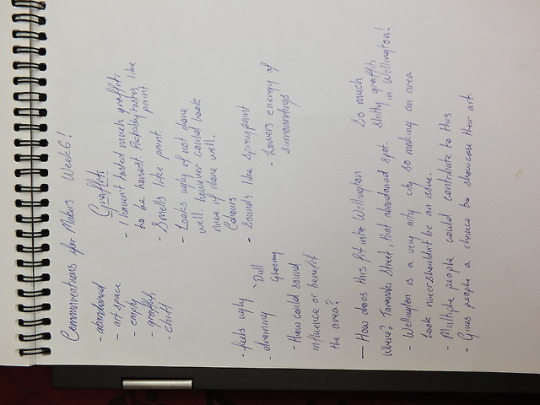 Communications for Makers Week 6!
- abandoned
- art space
- empty
- graffiti
- chill
Graffiti
- I haven't tasted much graffiti
to be honest. Probably tastes like
paint
- Smells like paint
- Looks ugly if not done
well, however could look
nice if done well.
Colours
- Sounds like spray paint
- feels ugly
- draining
Dull
Gloomy
- Lowers energy of
surroundings
- How could sound
influence or benefit
the area?
— How does this fit into Wellington
So much
shitty graffiti
in Wellington!
Where? Taranaki Street, that abandoned spot.
- Wellington is a very arty city so making an area
look nicer shouldn't be an issue.
- Multiple people could contribute to this
- Gives people a chance to showcase their art